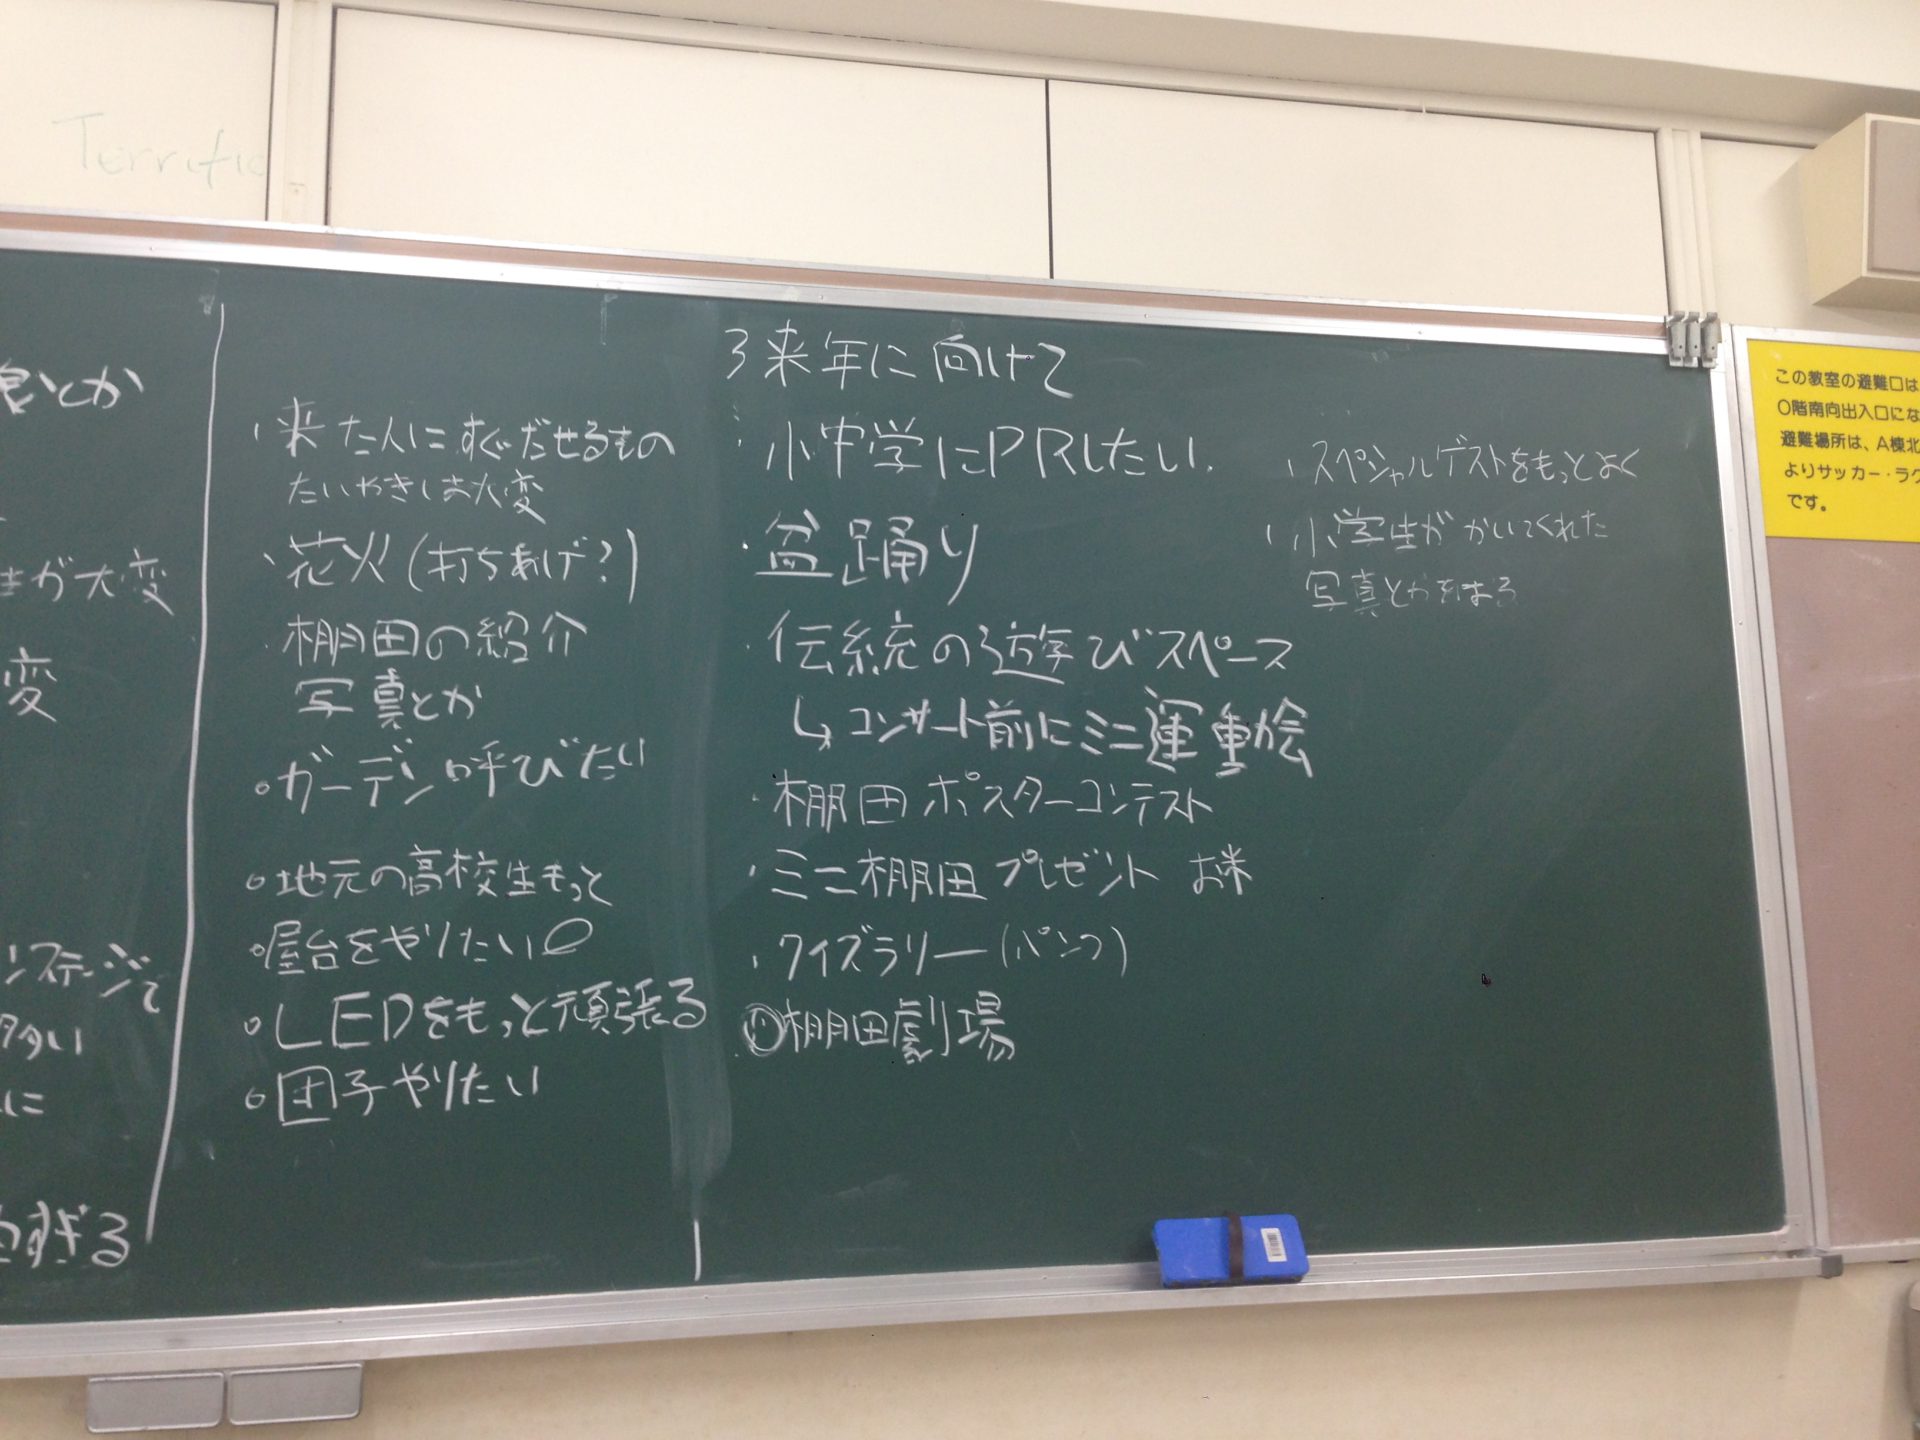 Terrific
とか
が大変
変
ンステージで
多い
に
すぎる
・来た人にすぐだせるもの
たいやきは大変
・花火(打ちあげ?)
・棚田の紹介
写真とか
○ガーデン呼びたい
○地元の高校生もっと
○屋台をやりたい
○LEDをもっと頑張る
○団子やりたい
3来年に向けて
・小中学にPRしたい.
・盆踊り
・伝統の遊びスペース
↳コンサート前にミニ運動会
・棚田ポスターコンテスト
・ミニ棚田プレゼント お米
・クイズラリー(パンフ)
棚田劇場
・スペシャルゲストをもっとよく
・小学生がかいてくれた
写真とかをはる
この教室の避難口は
〇階南向出入口にな
避難場所は、A棟北
よりサッカー・ラグ
です。